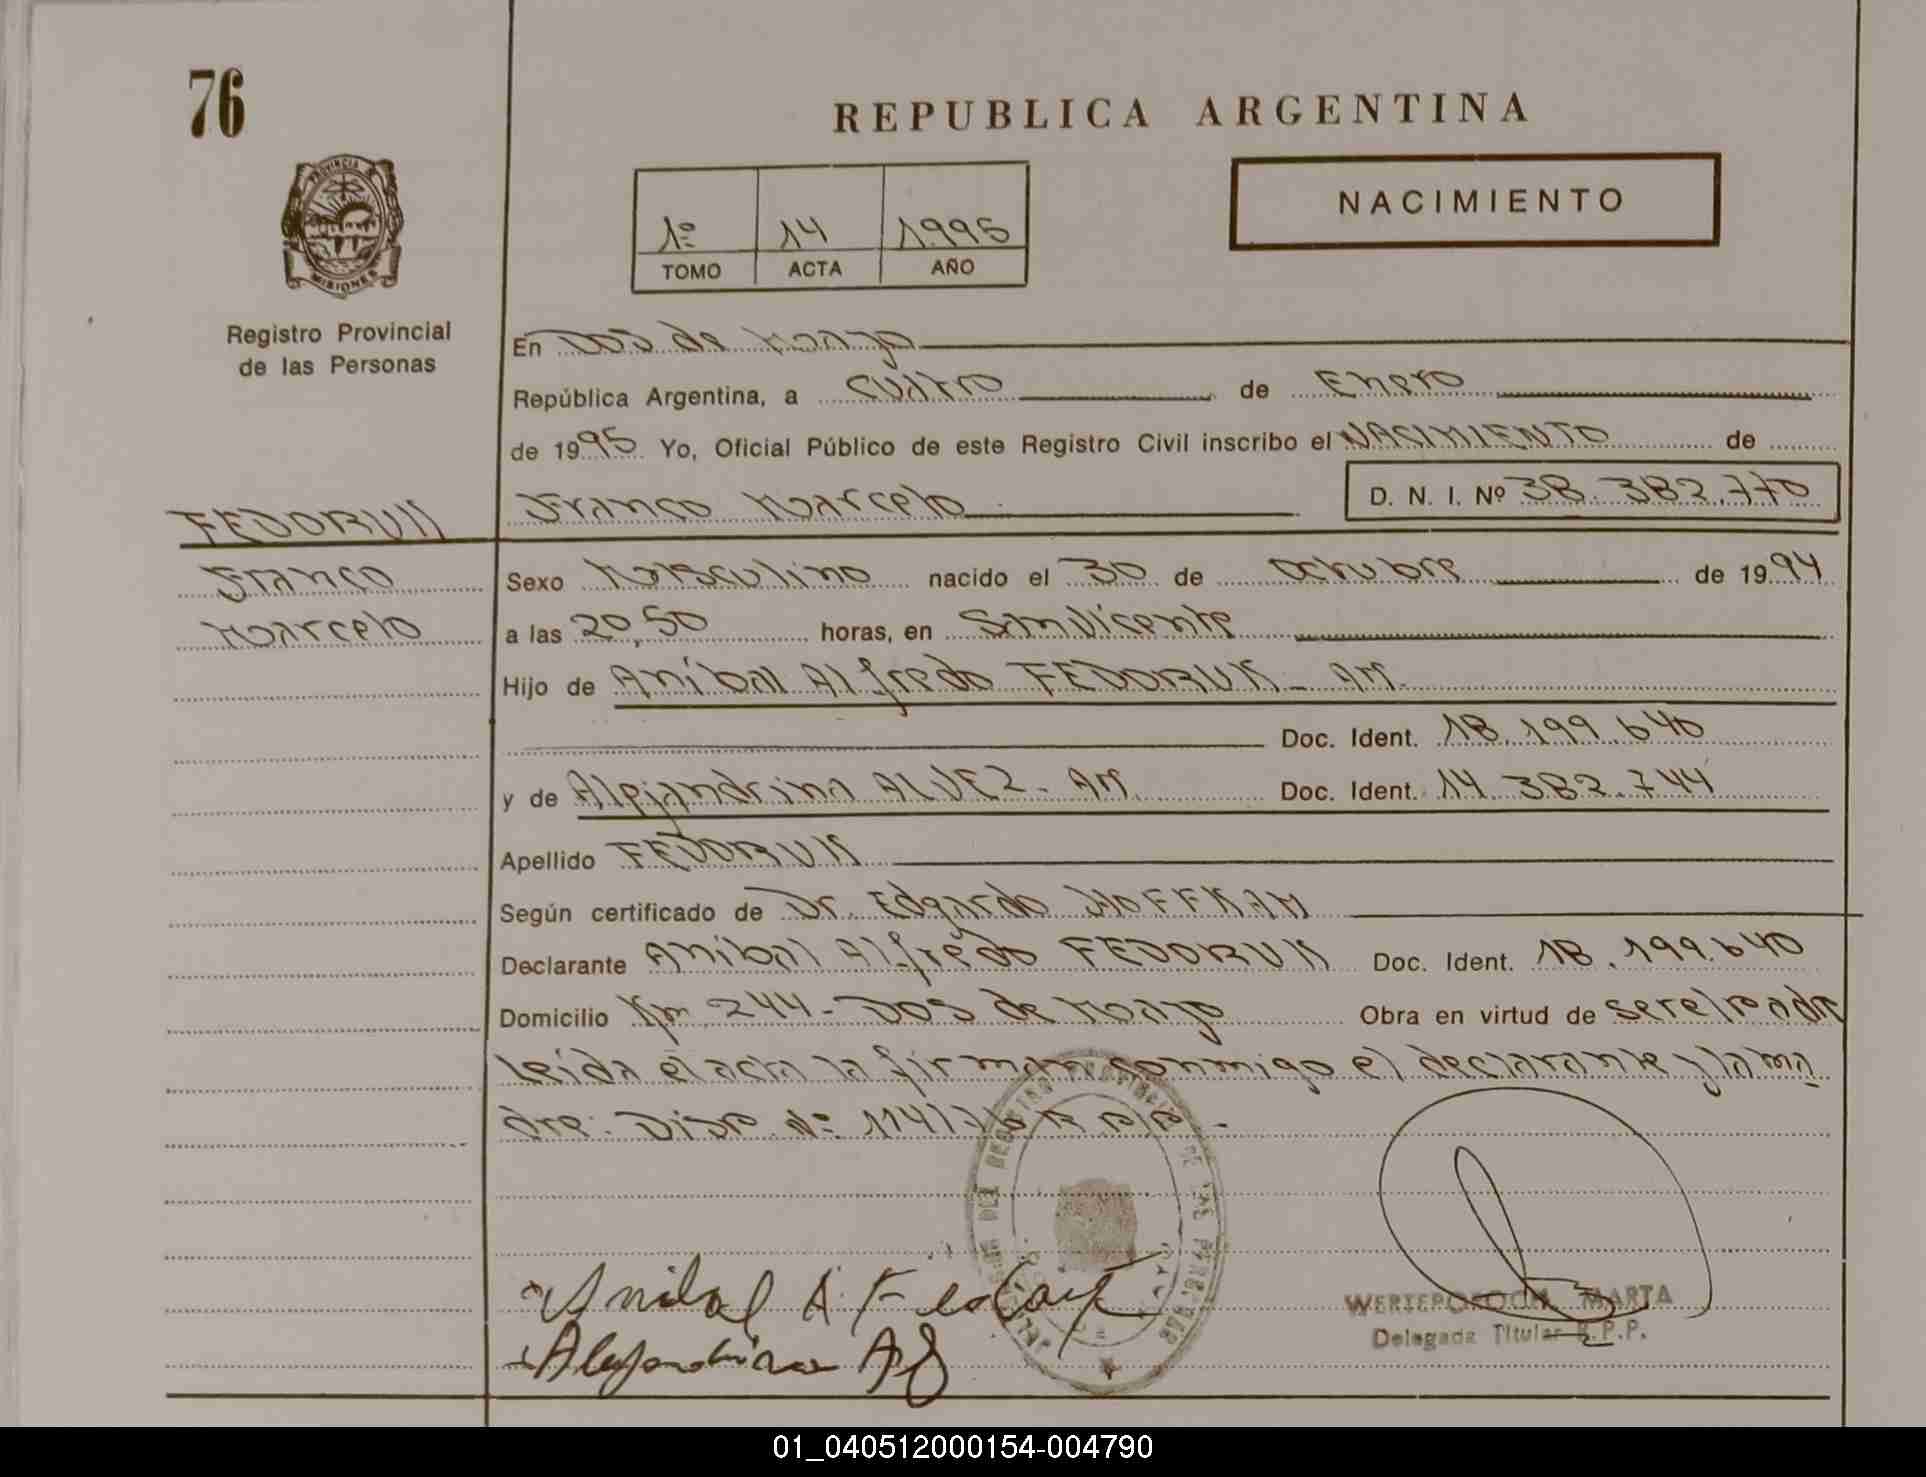 76
REPUBLICA ARGENTINA
PROVINCIA
MISIONES
1º 14 1995
TOMO ACTA AÑO
NACIMIENTO
Registro Provincial
de las Personas
En Dos de Mayo
República Argentina, a cuatro de Enero
de 1995 Yo, Oficial Público de este Registro Civil inscribo el NACIMIENTO de
FEDORUK Franco Marcelo D. N. I. Nº 38.382.770
Franco Sexo Masculino nacido el 30 de Octubre de 1994
Marcelo a las 20,50 horas, en San Vicente
Hijo de Anibal Alfredo FEDORUK - AM.
Doc. Ident. 18.199.640
y de Alejandrina ALVEZ - AM Doc. Ident. 14.382.744
Apellido FEDORUK
Según certificado de Dr. Edgardo
Declarante Anibal Alfredo FEDORUK Doc. Ident. 18.199.640
Domicilio Km 244 - Dos de Mayo Obra en virtud de ser el padre
leída el acta la firman conmigo el declarante y la ma
dre: Disp. Nº 114/76 R P P -
Anibal A. Fedoruk
Alejandrina
MARTA
Delegada Titular R.P.P.
01_040512000154-004790